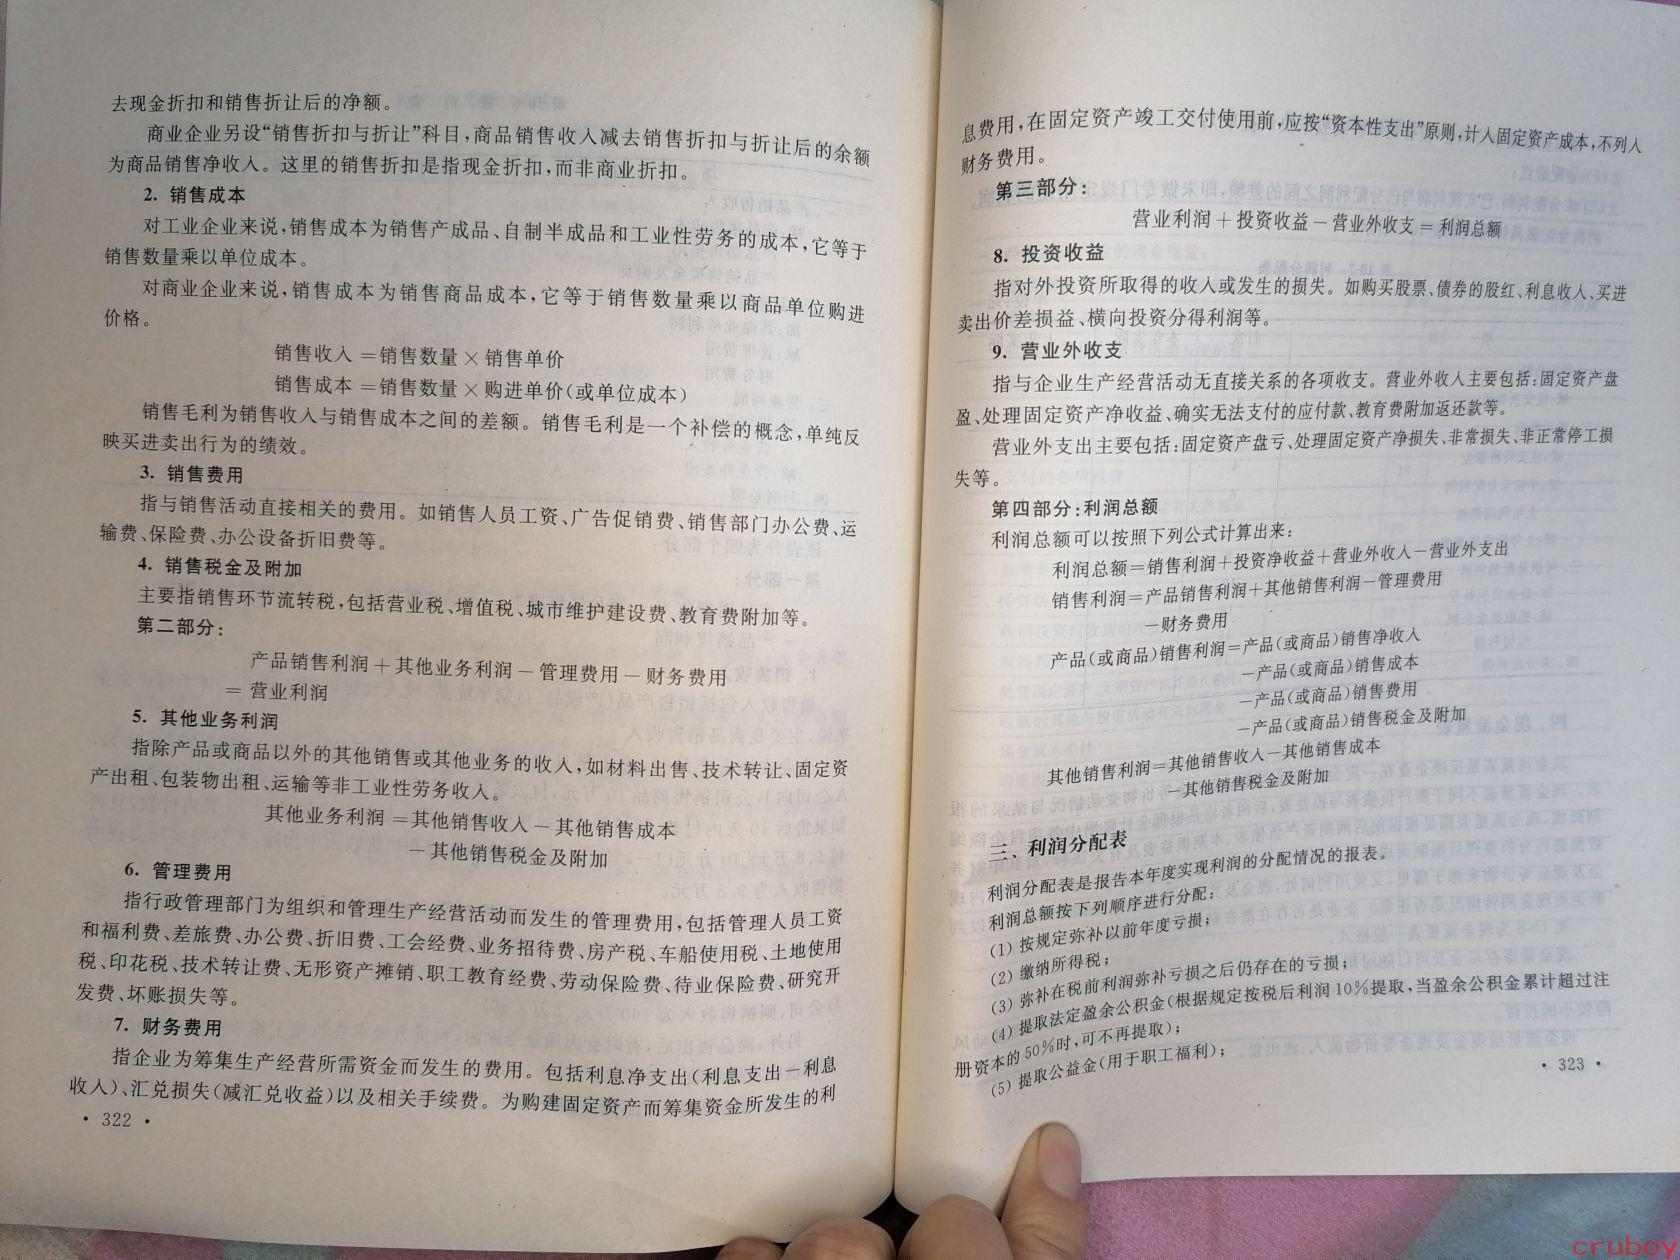 去现金折扣和销售折让后的净额。
商业企业另设“销售折扣与折让”科目,商品销售收入减去销售折扣与折让后的余额
为商品销售净收入。这里的销售折扣是指现金折扣,而非商业折扣。
2. 销售成本
对工业企业来说,销售成本为销售产成品、自制半成品和工业性劳务的成本,它等于
销售数量乘以单位成本。
对商业企业来说,销售成本为销售商品成本,它等于销售数量乘以商品单位购进
价格。
销售收入 =销售数量×销售单价
销售成本 =销售数量×购进单价(或单位成本)
销售毛利为销售收入与销售成本之间的差额。销售毛利是一个补偿的概念,单纯反
映买进卖出行为的绩效。
3. 销售费用
指与销售活动直接相关的费用。如销售人员工资、广告促销费、销售部门办公费、运
输费、保险费、办公设备折旧费等。
4. 销售税金及附加
主要指销售环节流转税,包括营业税、增值税、城市维护建设费、教育费附加等。
第二部分:
产品销售利润+其他业务利润-管理费用-财务费用
=营业利润
5. 其他业务利润
指除产品或商品以外的其他销售或其他业务的收入,如材料出售、技术转让、固定资
产出租、包装物出租、运输等非工业性劳务收入。
其他业务利润 =其他销售收入-其他销售成本
-其他销售税金及附加
6. 管理费用
指行政管理部门为组织和管理生产经营活动而发生的管理费用,包括管理人员工资
和福利费、差旅费、办公费、折旧费、工会经费、业务招待费、房产税、车船使用税、土地使用
税、印花税、技术转让费、无形资产摊销、职工教育经费、劳动保险费、待业保险费、研究开
发费、坏账损失等。
7. 财务费用
指企业为筹集生产经营所需资金而发生的费用。包括利息净支出(利息支出-利息
收入)、汇兑损失(减汇兑收益)以及相关手续费。为购建固定资产而筹集资金所发生的利
· 322 ·
息费用,在固定资产竣工交付使用前,应按“资本性支出”原则,计入固定资产成本,不列入
财务费用。
第三部分:
营业利润+投资收益-营业外收支=利润总额
8. 投资收益
指对外投资所取得的收入或发生的损失。如购买股票、债券的股红、利息收入、买进
卖出价差损益、横向投资分得利润等。
9. 营业外收支
指与企业生产经营活动无直接关系的各项收支。营业外收入主要包括:固定资产盘
盈、处理固定资产净收益、确实无法支付的应付款、教育费附加返还款等。
营业外支出主要包括:固定资产盘亏、处理固定资产净损失、非常损失、非正常停工损
失等。
第四部分:利润总额
利润总额可以按照下列公式计算出来:
利润总额=销售利润+投资净收益+营业外收入-营业外支出
销售利润=产品销售利润+其他销售利润-管理费用
-财务费用
产品(或商品)销售利润=产品(或商品)销售净收入
-产品(或商品)销售成本
-产品(或商品)销售费用
-产品(或商品)销售税金及附加
其他销售利润=其他销售收入-其他销售成本
-其他销售税金及附加
三、利润分配表
利润分配表是报告本年度实现利润的分配情况的报表。
利润总额按下列顺序进行分配:
(1) 按规定弥补以前年度亏损;
(2) 缴纳所得税;
(3) 弥补在税前利润弥补亏损之后仍存在的亏损;
(4) 提取法定盈余公积金(根据规定按税后利润10%提取,当盈余公积金累计超过注
册资本的50%时,可不再提取);
(5) 提取公益金(用于职工福利);
· 323 ·
cruboy